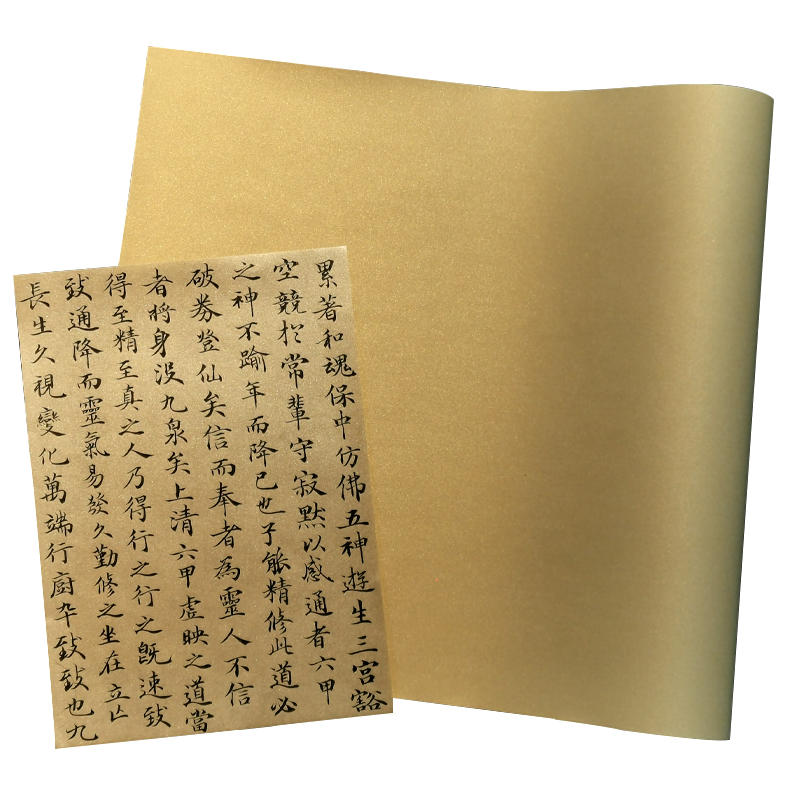 累著和魂保中仿佛五神遊生三宮豁
空競於常輩守寂默以感通者六甲
之神不踰年而降已也子能精修此道必
破券登仙矣信而奉者為靈人不信
者將身没九泉矣上清六甲虛映之道當
得至精至真之人乃得行之行之既速致
致通降而靈氣易發久勤修之坐在立亡
長生久視變化萬端行廚卒致致也九